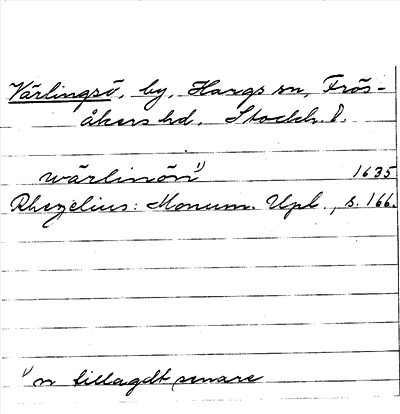 Värlingsö, by, Hargs sn, Frös-
åkers hd. Stockh. l.
wärlinön¹⁾ 1635
Rhezelius: Monum. Upl., s. 166.
¹⁾ n tillagdt senare